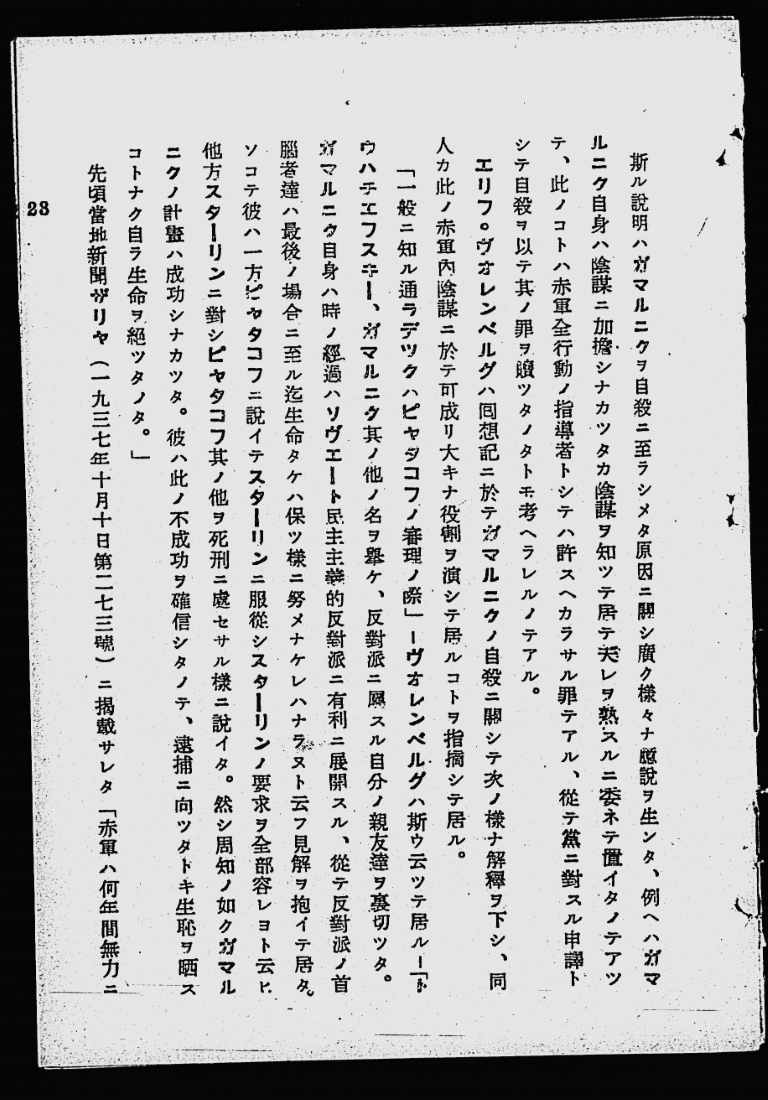 斯ル說明ハガマルニクヲ自殺ニ至ラシメタ原因ニ關シ廣ク樣々ナ臆說ヲ生ンタ、例ヘハガマ
ルニク自身ハ陰謀ニ加擔シナカツタカ陰謀ヲ知ツテ居テ夫レヲ熟スルニ委ネテ置イタノテアツ
テ、此ノコトハ赤軍全行動ノ指導者トシテハ許スヘカラサル罪テアル、從テ黨ニ對スル申譯ト
シテ自殺ヲ以テ其ノ罪ヲ贖ツタノタトモ考ヘラレルノテアル。
エリフ。ヴオレンベルグハ囘想記ニ於テガマルニクノ自殺ニ關シテ次ノ樣ナ解釋ヲ下シ、同
人カ此ノ赤軍內陰謀ニ於テ可成リ大キナ役割ヲ演シテ居ルコトヲ指摘シテ居ル。
「一般ニ知ル通ラデツクハピヤタコフノ審理ノ際」ーヴオレンベルグハ斯ウ云ツテ居ルー「ト
ウハチエフスキー、ガマルニク其ノ他ノ名ヲ擧ケ、反對派ニ屬スル自分ノ親友達ヲ裏切ツタ。
ガマルニク自身ハ時ノ經過ハソヴエート民主主義的反對派ニ有利ニ展開スル、從テ反對派ノ首
腦者達ハ最後ノ場合ニ至ル迄生命タケハ保ツ樣ニ努メナケレハナラヌト云フ見解ヲ抱イテ居タ。
ソコテ彼ハ一方ピヤタコフニ說イテスターリンニ服從シスターリンノ要求ヲ全部容レヨト云ヒ
他方スターリンニ對シピヤタコフ其ノ他ヲ死刑ニ處セサル樣ニ說イタ。然シ周知ノ如クガマル
ニクノ計畫ハ成功シナカツタ。彼ハ此ノ不成功ヲ確信シタノテ、逮捕ニ向ツタトキ生恥ヲ晒ス
コトナク自ラ生命ヲ絕ツタノタ。」
先頃當地新聞ザリヤ（一九三七年十月十日第二七三號）ニ揭載サレタ「赤軍ハ何年間無力ニ
23